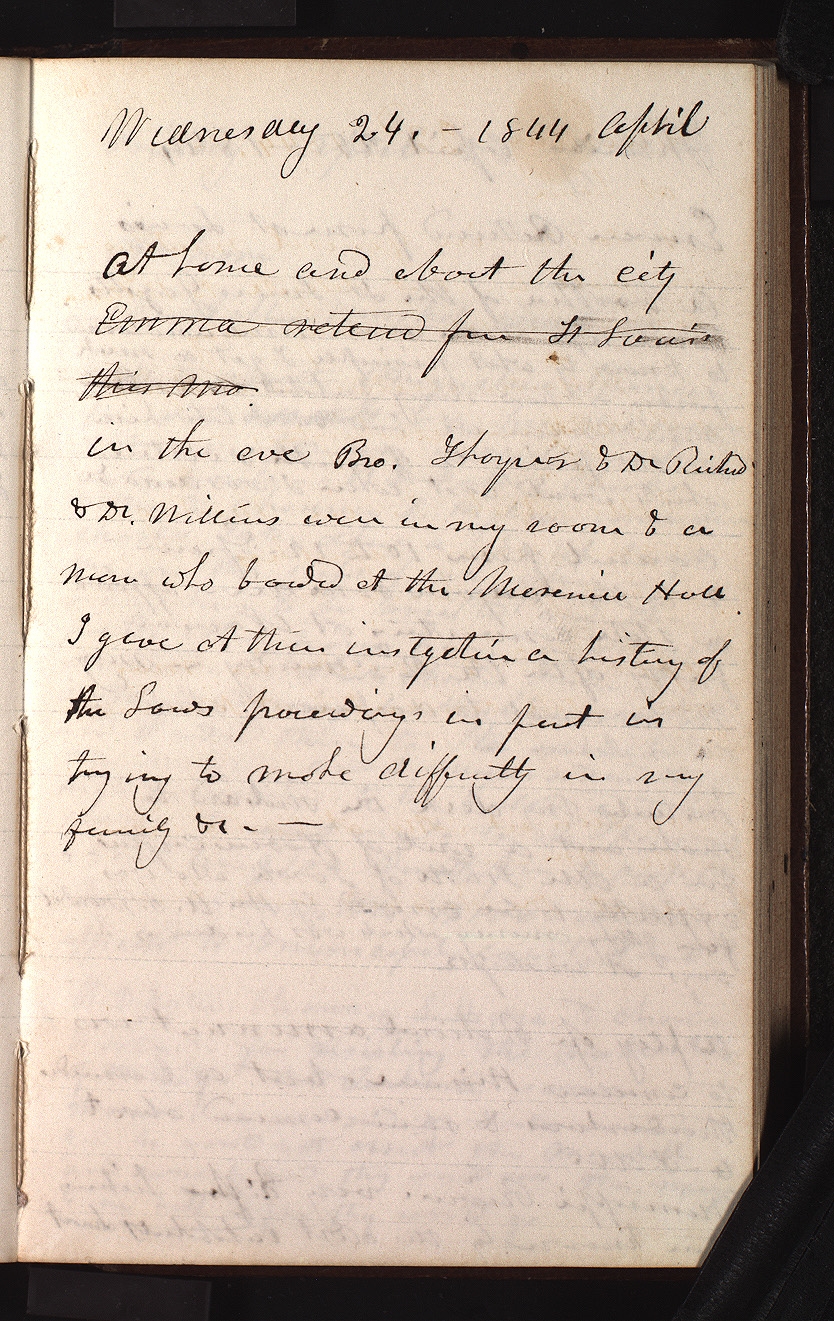 Wednesday 24. - 1844 April
at home and about the city
Emma retend fm St Louis
this mo.
in the eve Bro. & Dr Richd
& Dr. Williams were in my room & a
man who boaded at the Mansion
I gave at their a history of
the Laws proceedings in part in
trying to make difficulty in my
family &c - —